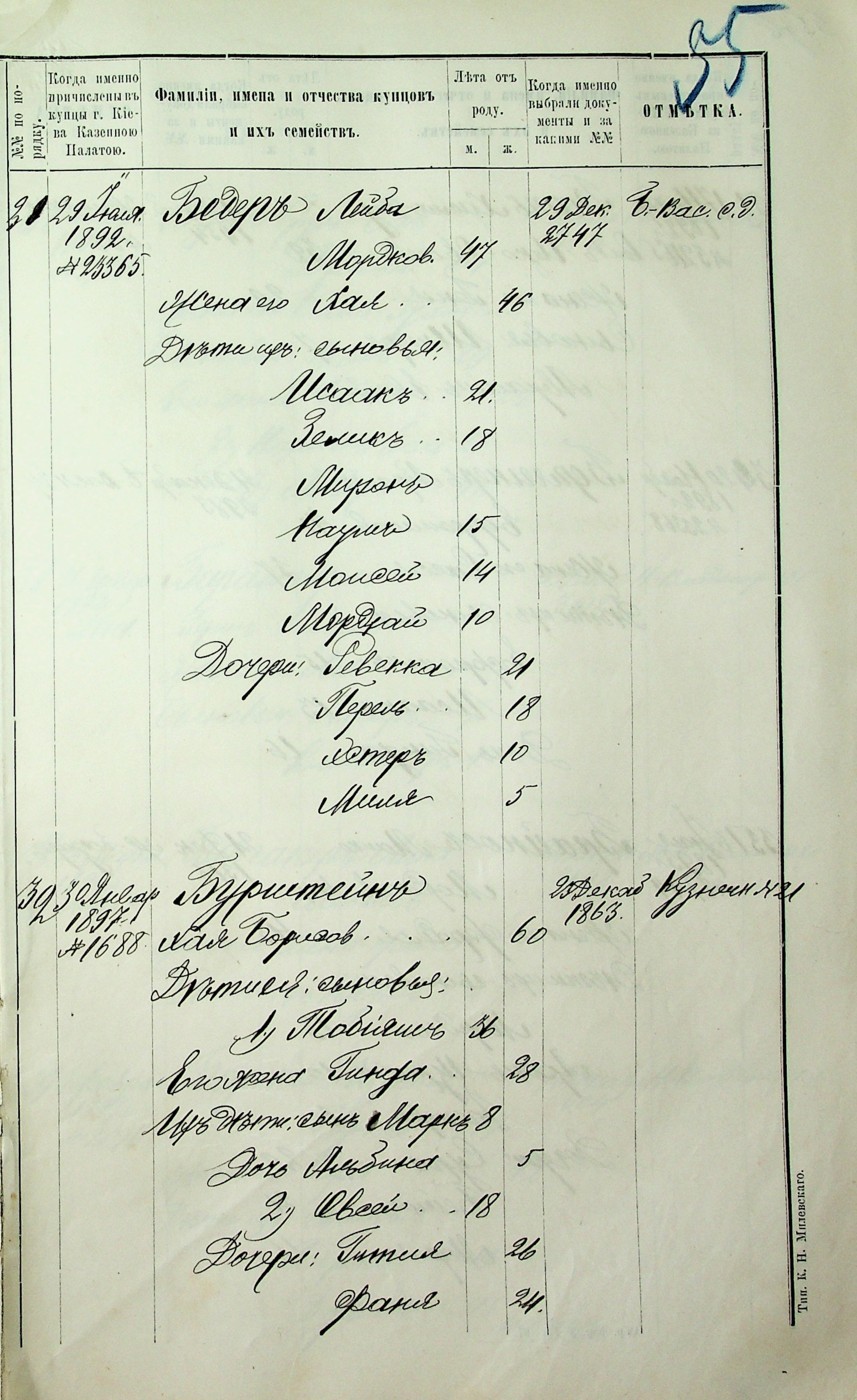 95
№№ по по-
рядку.
Когда именно
причислены въ
купцы г. Кіе-
ва Казенною
Палатою.
Фамиліи, имена и отчества купцовъ
и ихъ семействъ.
Лѣта отъ
роду.
м. ж.
Когда именно
выбрали доку-
менты и за
какими №№
ОТМѢТКА.
29 Іюля
1892.
№ 25365.
Бедеръ Лейба
Мордков. 47
29 Дек.
2747
Б.-Вас. с. д.
Жена его Хая 46
Дѣти ихъ: сыновья:
Исаакъ 21.
Зеликъ 18
Миронъ
Наумъ 15
Моисей 14
Мордхай 10
Дочери: Ревекка 21
Перель 18
Эстеръ 10
Миля 5
392
30 Январ
1897.
№ 1688
Бурштейнъ
Хая Борисов. 60
Декаб
1863.
Кузнечн № 21
Дѣти ея: сыновья:
1) Тобіяшъ 36
Его жена Гинда 28
Ихъ дѣти: сынъ Маркъ 8
Дочь Альбина 5
2) Овсей 18
Дочери: Гитля 26
Фаня 24.
Тип. К. Н. Милевскаго.